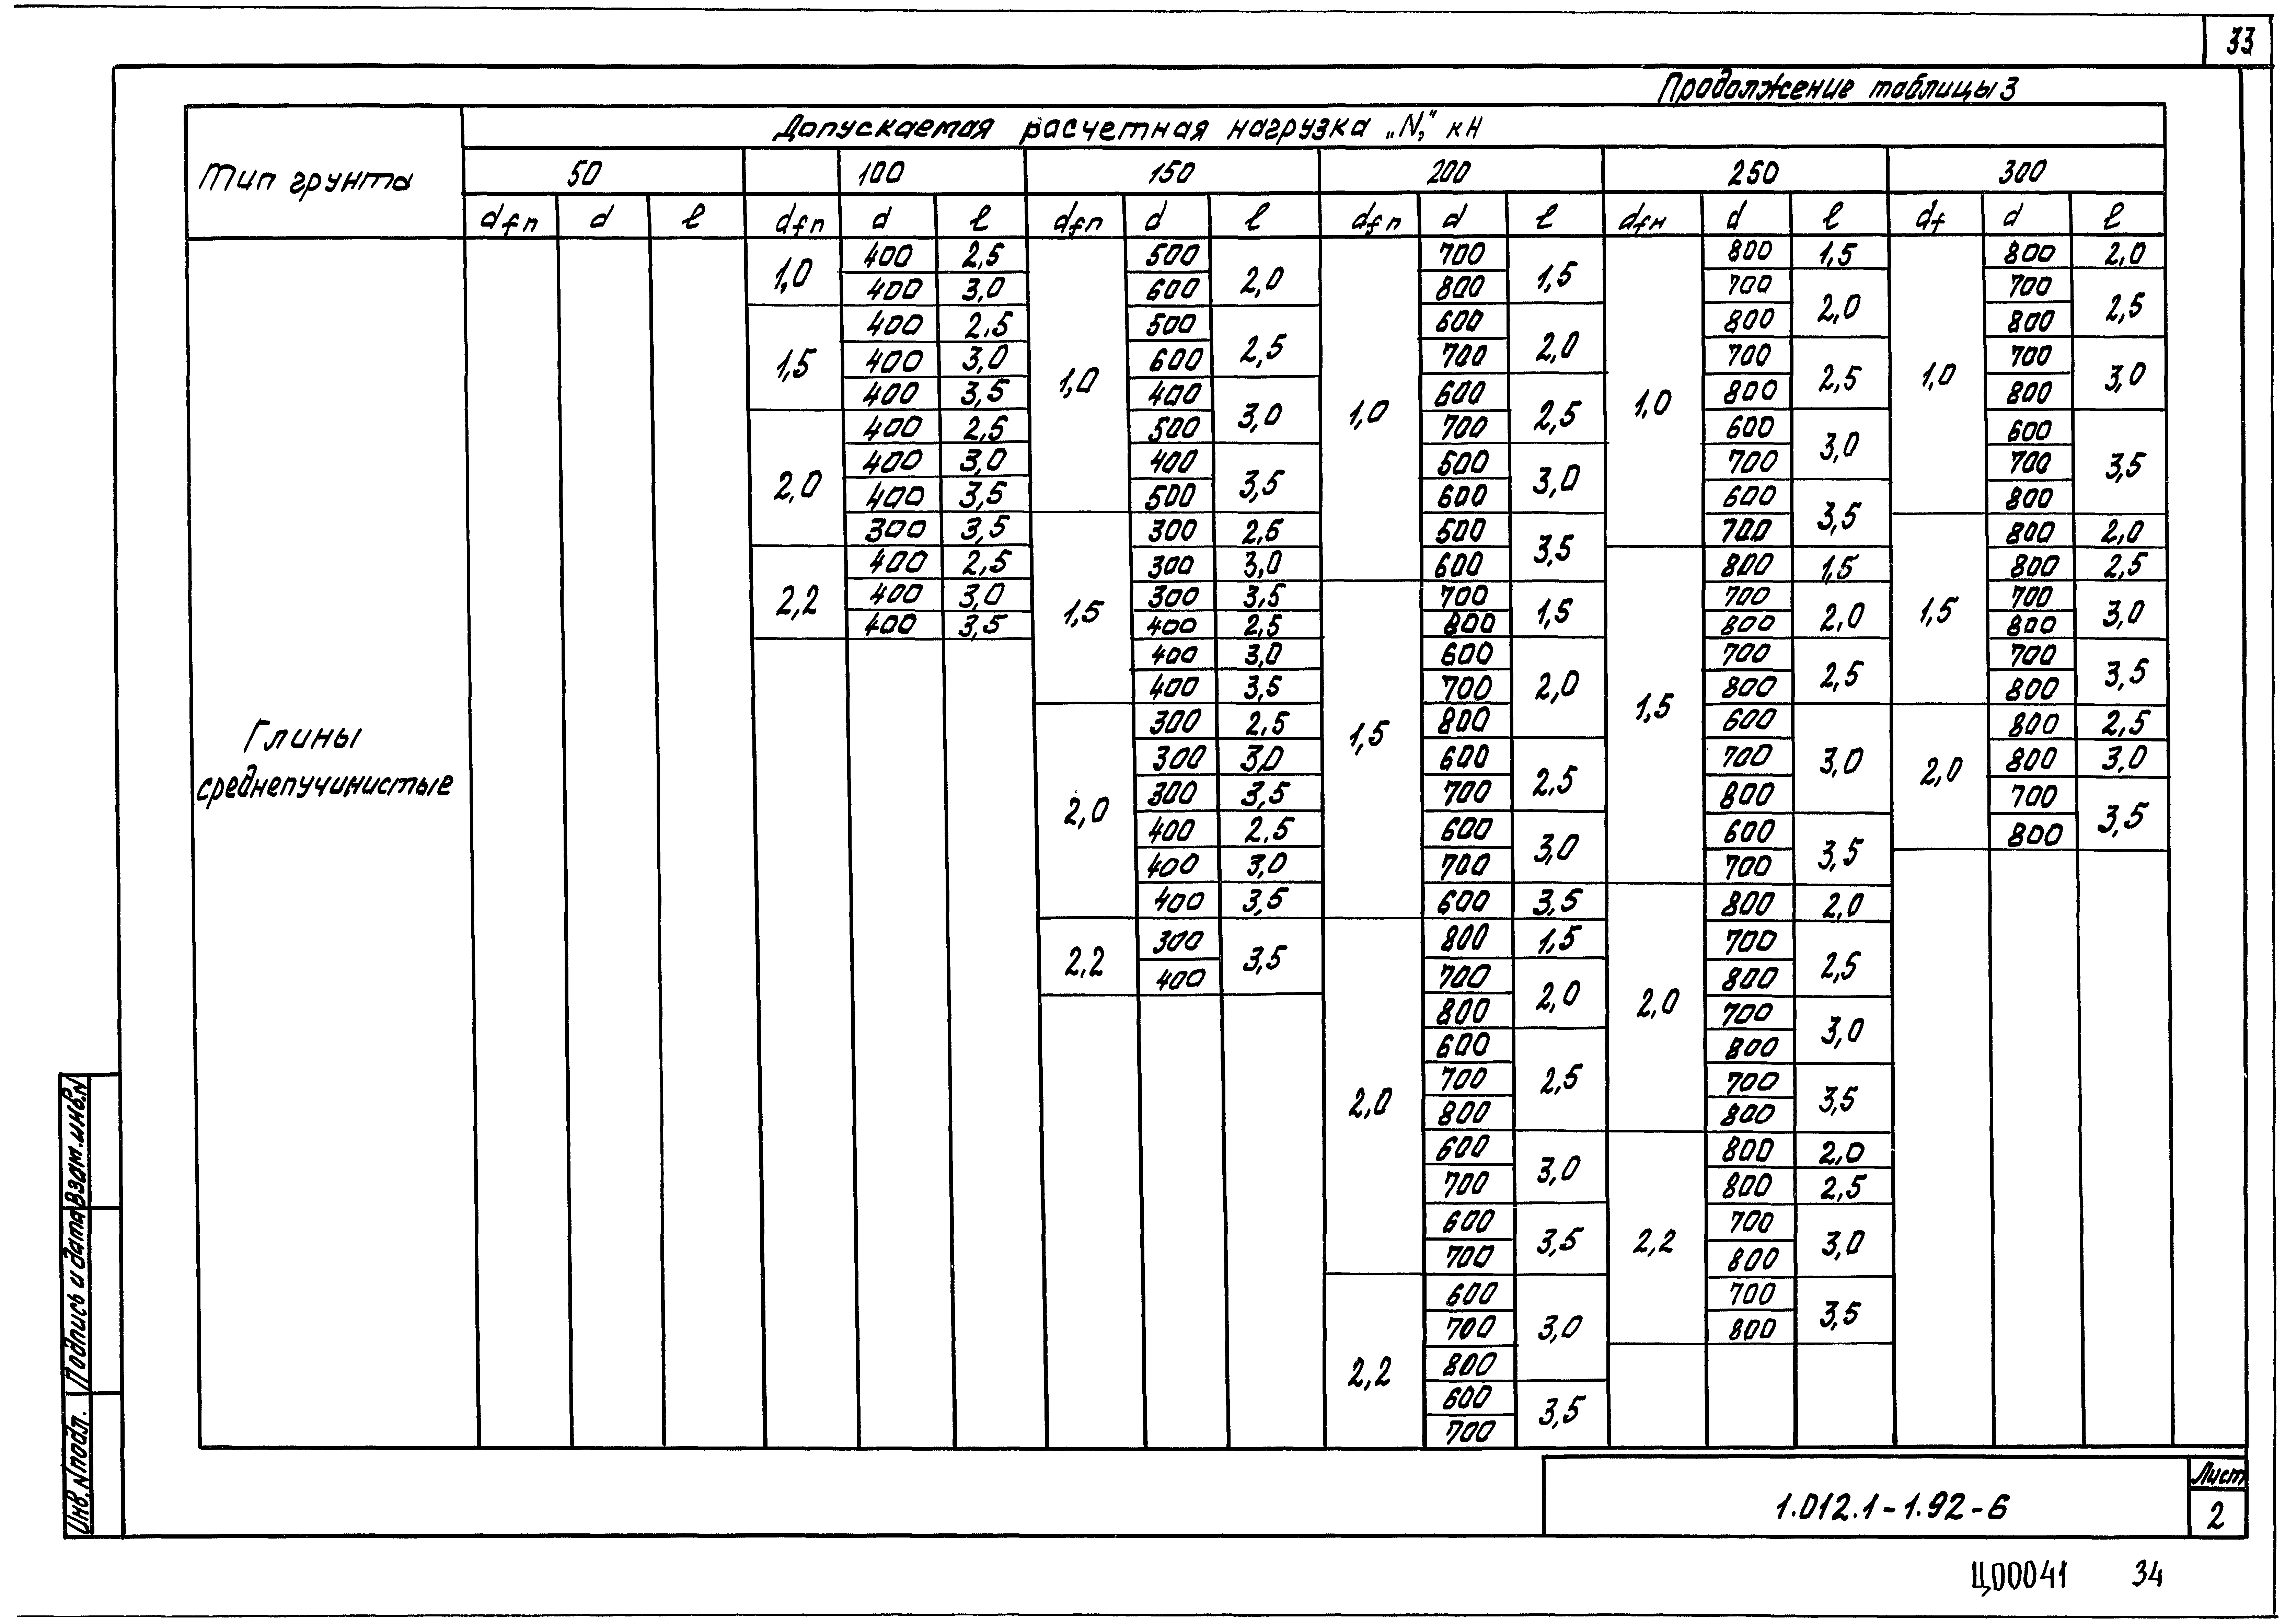 33
Продолжение таблицы 3
Тип грунта
Допускаемая расчетная нагрузка „N,“ кН
50 100 150 200 250 300
dfп d ℓ dfп d ℓ dfп d ℓ dfп d ℓ dfн d ℓ df d ℓ
Глины
среднепучинистые
1,0 400 2,5
400 3,0
1,5 400 2,5
400 3,0
400 3,5
2,0 400 2,5
400 3,0
400 3,5
300 3,5
2,2 400 2,5
400 3,0
400 3,5
1,0 500 2,0
600
500 2,5
600
400 3,0
500
400 3,5
500
1,5 300 2,5
300 3,0
300 3,5
400 2,5
400 3,0
400 3,5
2,0 300 2,5
300 3,0
300 3,5
400 2,5
400 3,0
400 3,5
2,2 300 3,5
400
1,0 700 1,5
800
600 2,0
700
600 2,5
700
500 3,0
600
500 3,5
600
1,5 700 1,5
800
600 2,0
700
800
600 2,5
700
600 3,0
700
600 3,5
2,0 800 1,5
700 2,0
800
600 2,5
700
800
600 3,0
700
600 3,5
700
2,2 600 3,0
700
800
600 3,5
700
1,0 800 1,5
700 2,0
800
700 2,5
800
600 3,0
700
600 3,5
700
1,5 800 1,5
700 2,0
800
700 2,5
800
600 3,0
700
800
600 3,5
700
2,0 800 2,0
700 2,5
800
700 3,0
800
700 3,5
800
2,2 800 2,0
800 2,5
700 3,0
800
700 3,5
800
1,0 800 2,0
700 2,5
800
700 3,0
800
600 3,5
700
800
1,5 800 2,0
800 2,5
700 3,0
800
700 3,5
800
2,0 800 2,5
800 3,0
700 3,5
800
Взам.инв.N
Подпись и дата
Инв. N подл.
1.012.1-1.92-6
Лист
2
Ц00041 34